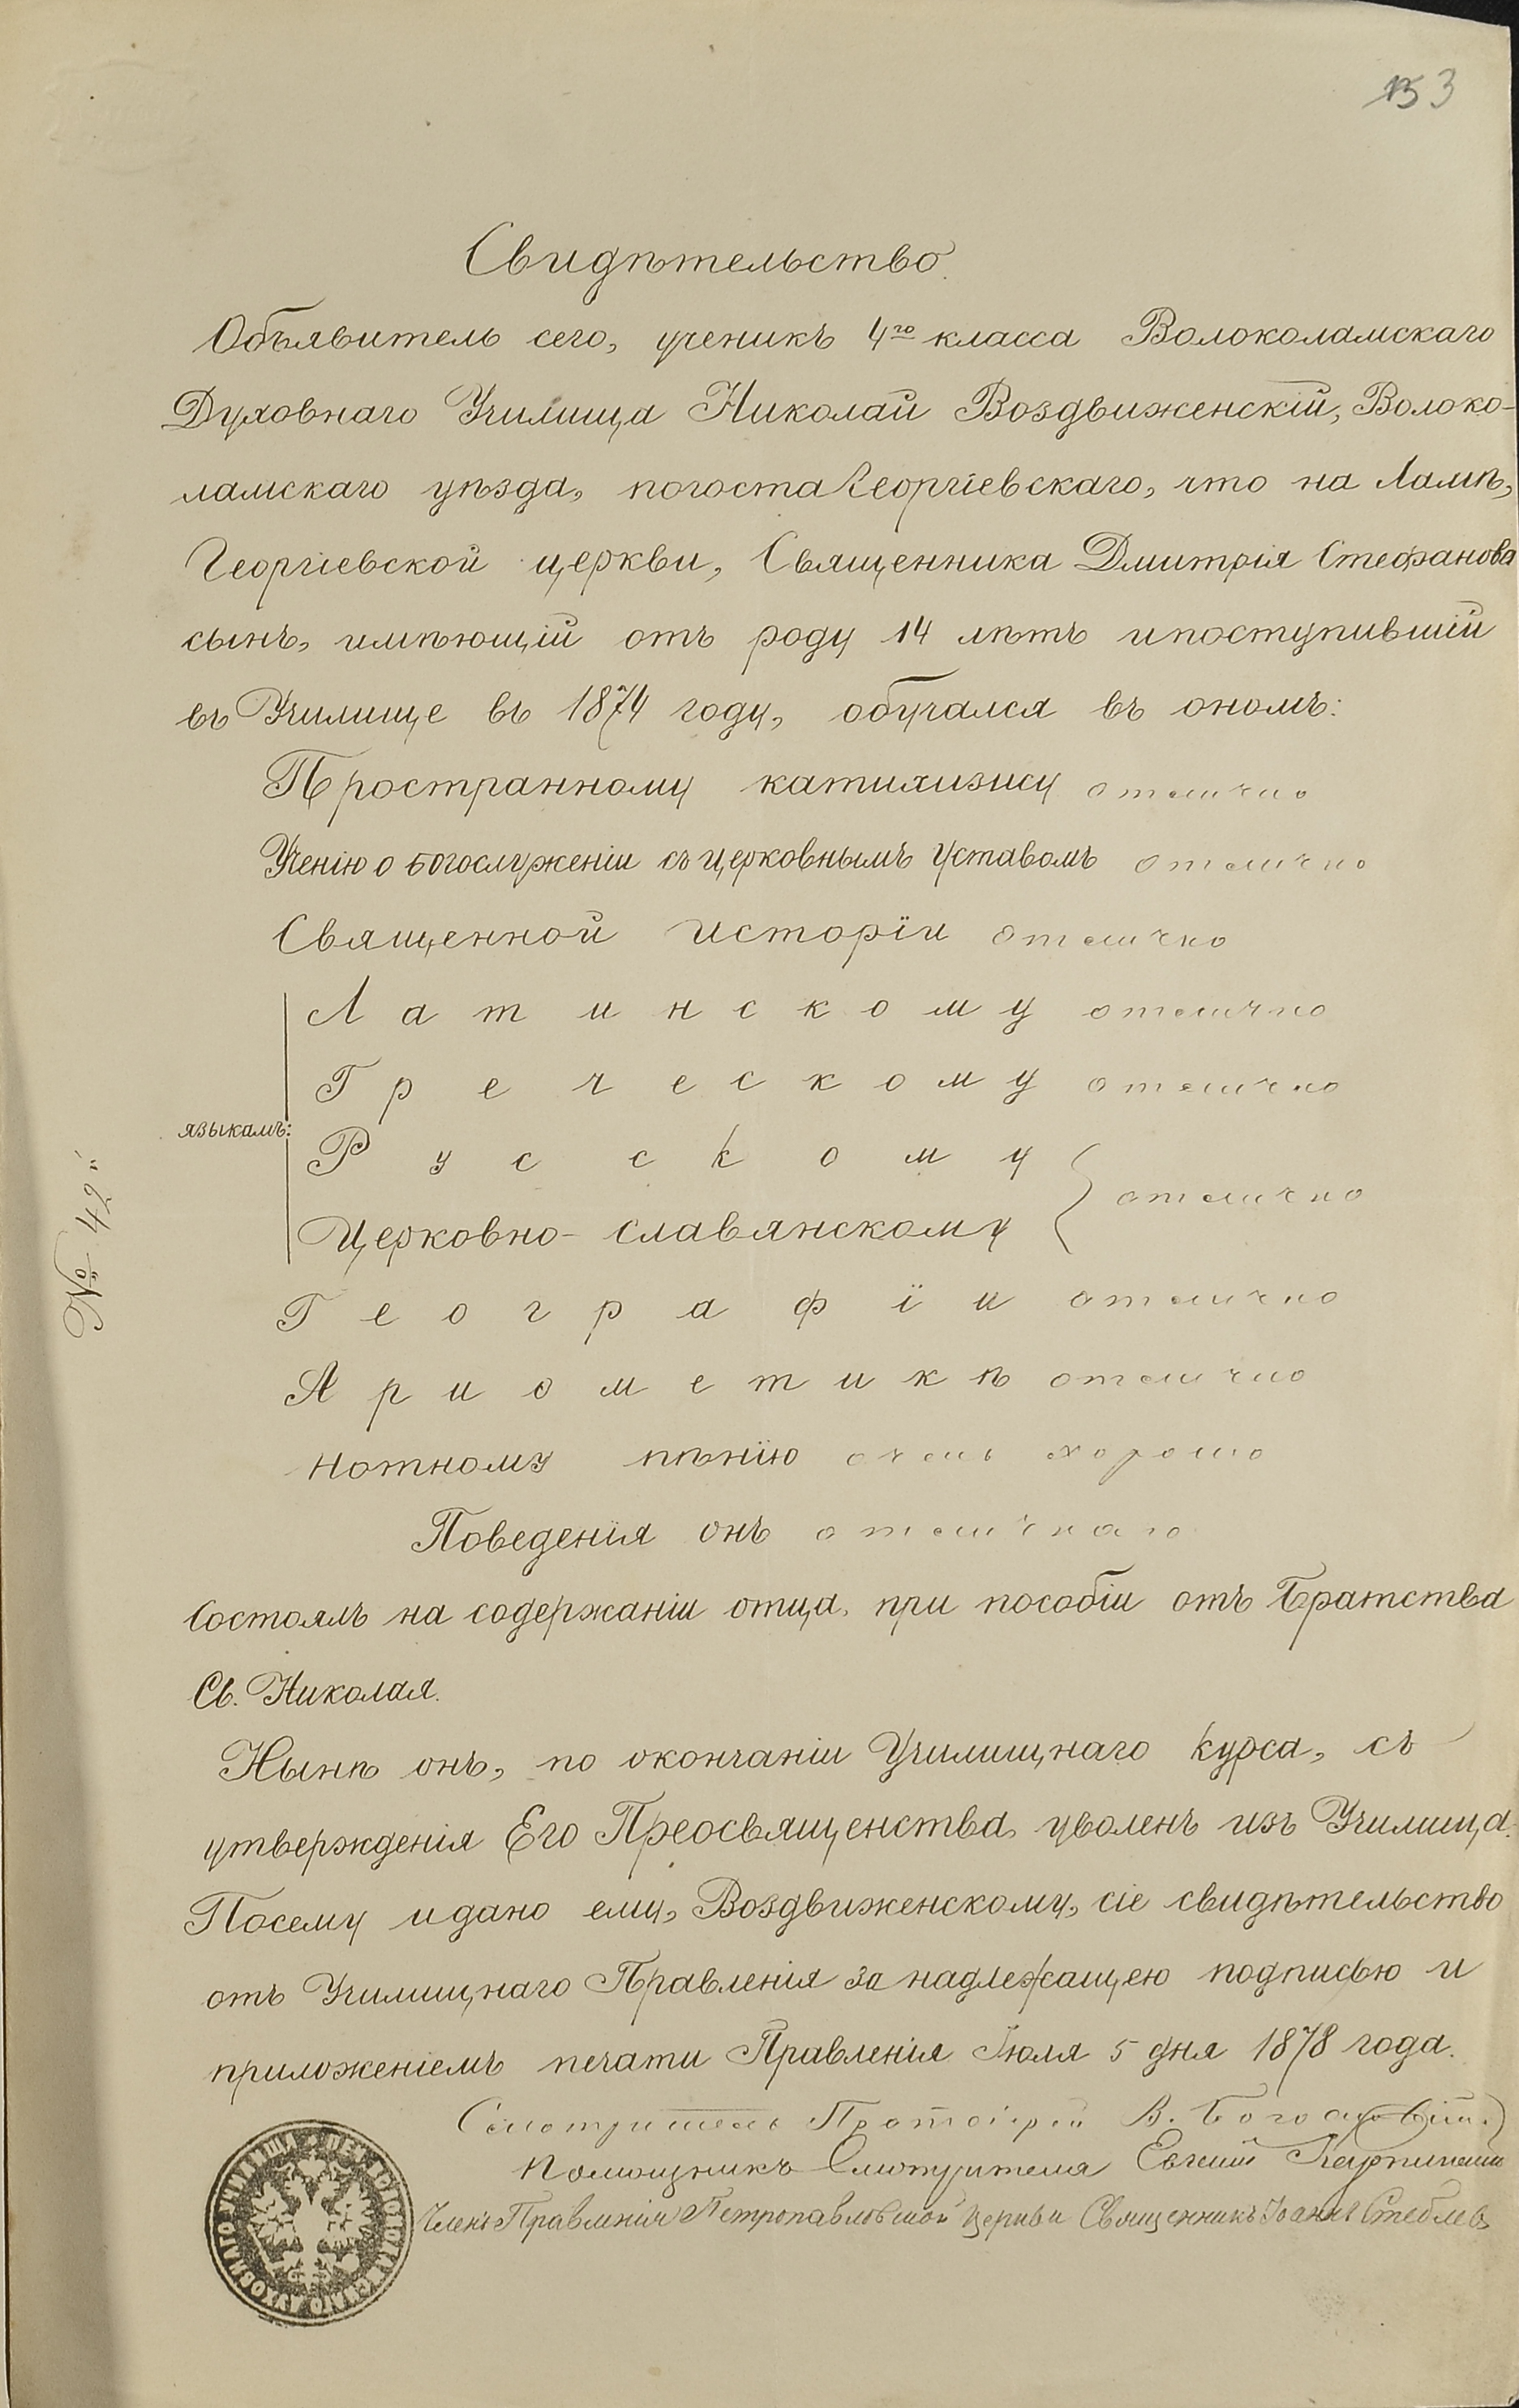 3
Свидѣтельство.
Объявитель сего, ученикъ 4го класса Волоколамскаго
Духовнаго Училища Николай Воздвиженскій, Волоко-
ламскаго уѣзда, погоста Георгіевскаго, что на Ламѣ,
Георгіевской церкви, Священника Дмитрія Стефанова
сынъ, имѣющій отъ роду 14 лѣтъ и поступившій
въ Училище въ 1874 году, обучался въ ономъ:
Пространному катихизису отлично
Ученію о богослуженіи съ церковнымъ уставомъ отлично
Священной исторіи отлично
Латинскому отлично
Греческому отлично
языкамъ:
Русскому
отлично
Церковно-славянскому
№ 42
Географіи отлично
Ариѳметикѣ отлично
Нотному пѣнію очень хорошо
Поведенія онъ отличнаго
Состоялъ на содержаніи отца, при пособіи отъ Братства
Св. Николая.
Нынѣ онъ, по окончаніи Училищнаго курса, съ
утвержденія Его Преосвященства, уволенъ изъ Училища.
Посему и дано ему, Воздвиженскому, сіе свидѣтельство
отъ Училищнаго Правленія за надлежащею подписью и
приложеніемъ печати Правленія Іюля 5 дня 1878 года.
Смотритель Протоіерей В.
Помощникъ Смотрителя Евгеній
Членъ Правленія Петропавловской церкви Священникъ Іоаннъ Стеблевъ